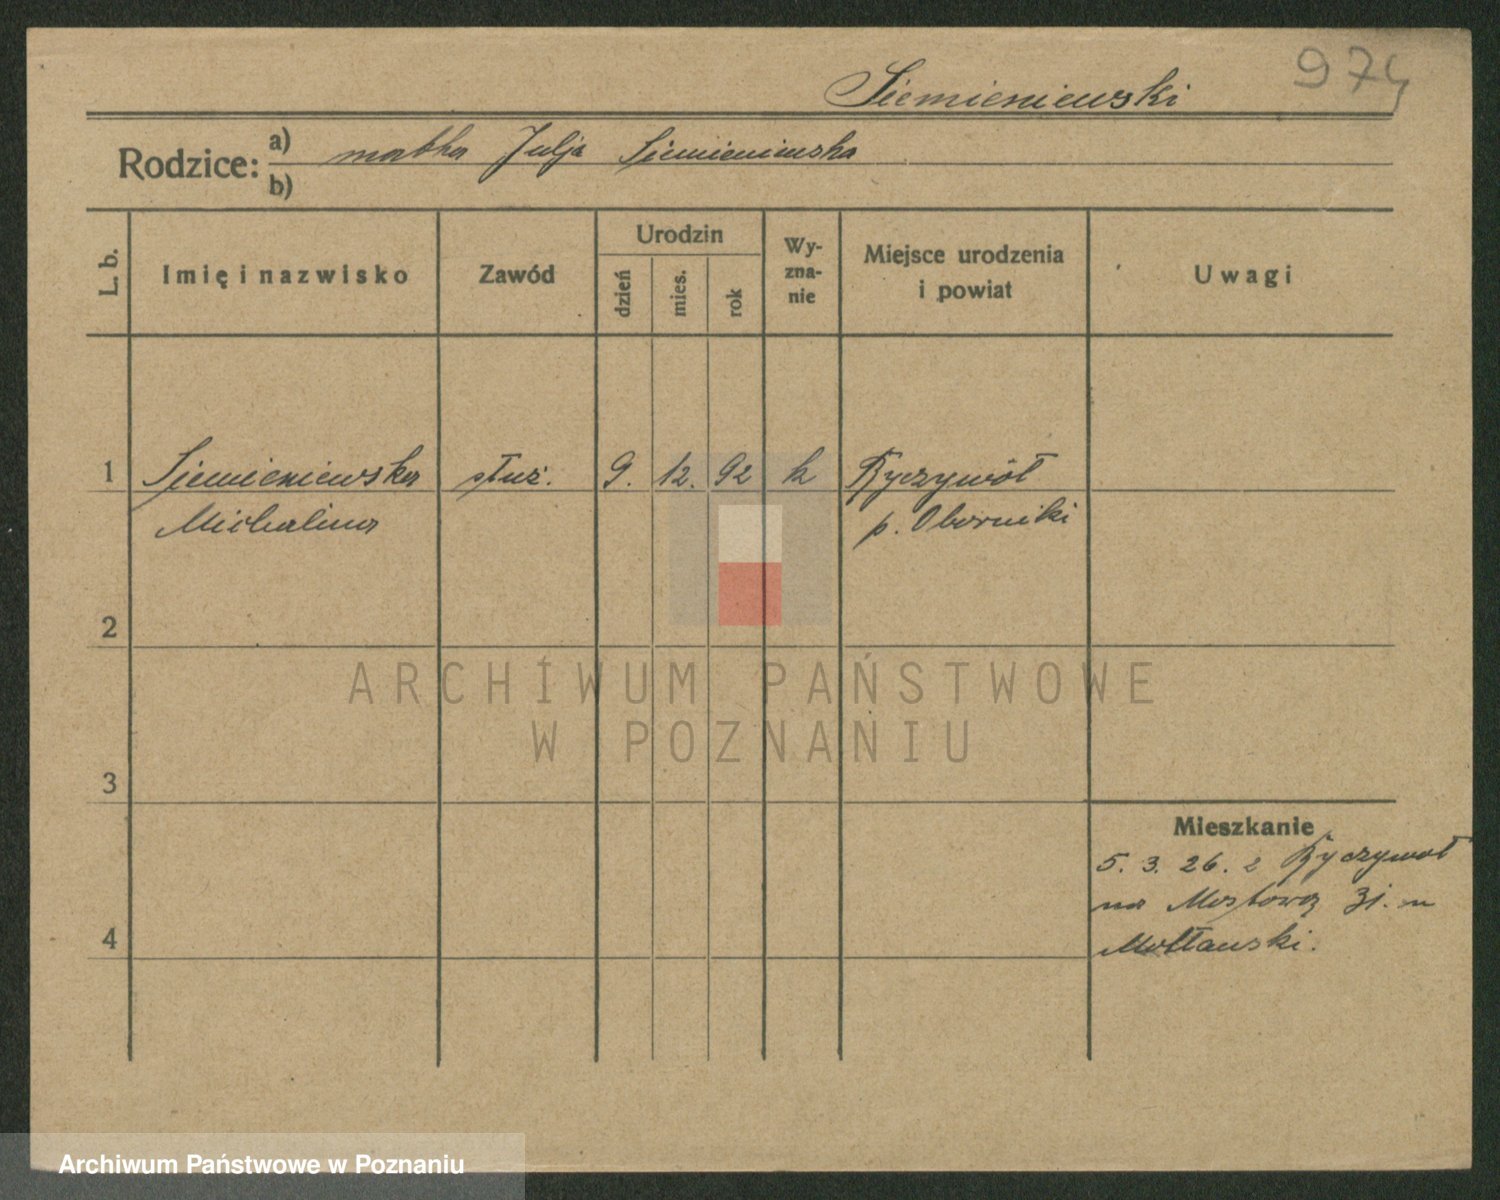 Siemieniewski
974
Rodzice: a) matka Julja Siemieniewska
b)
L. b.
Imię i nazwisko
Zawód
Urodzin
dzień
mies.
rok
Wy-
zna-
nie
Miejsce urodzenia
i powiat
Uwagi
1 Siemieniewska służ. 9. 12. 92 k Ryczywół
Michalina p. Oborniki
2
ARCHIWUM PAŃSTWOWE
W POZNANIU
3
Mieszkanie
5. 3. 26. z Ryczywół
na Mostową 31. m
4
Archiwum Państwowe w Poznaniu